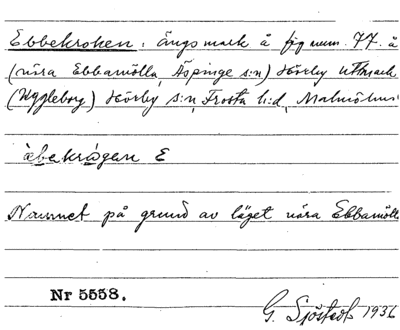 Ebbekroken: ängsmark å fig num. 77. å
(nära Ebbamölla, Äspinge s:n) Hörby
Hörby s:n, Frosta h:d, Malmöhus
àbekrágen E
Namnet på grund av läget nära Ebbamölla
Nr 5558.
G. Sjöstedt 1936